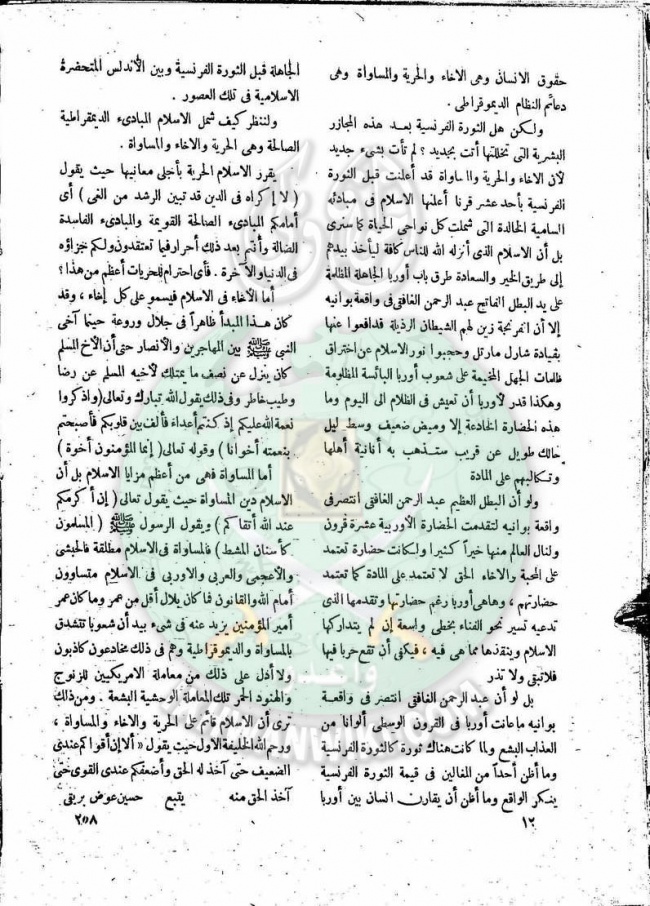 حقوق الانسان وهى الاخاء والحرية والمساواة وهى
دعائم النظام الديموقراطى .
ولكن هل الثورة الفرنسية بعد هذه المجازر
البشرية التى تخللتها أتت بجديد ؟ لم تأت بشىء جديد
لأن الاخاء والحرية والمساواة قد أعلنت قبل الثورة
الفرنسية بأحد عشر قرنا أعلنها الاسلام فى مبادئه
السامية الخالدة التى شملت كل نواحى الحياة كما سنرى
بل أن الاسلام الذى أنزله الله للناس كافة ليأخذ بيدهم
إلى طريق الخير والسعادة طرق باب أوربا الجاهلة المظلمة
على يد البطل الفاتح عبد الرحمن الغافقى فى واقعة بوانيه
إلا أن الفرنجة زين لهم الشيطان الرذيلة فدافعوا عنها
بقيادة شارل مارتل وحجبوا نور الاسلام عن اختراق
ظلمات الجهل المخيمة على شعوب أوربا البائسة المظلومة
وهكذا قدر لأوربا أن تعيش فى الظلام الى اليوم وما
هذه الحضارة الخادعة إلا وميض ضعيف وسط ليل
حالك طويل عن قريب ستذهب به أنانية أهلها
وتكالبهم على المادة
ولو أن البطل العظيم عبد الرحمن الغافقى أنتصر فى
واقعة بوانيه لتقدمت الحضارة الأوربية عشرة قرون
ولنال العالم منها خيراً كثيرا ولكانت حضارة تعتمد
على المحبة والاخاء الحق لا تعتمد على المادة كما تعتمد
حضارتهم ، وهاهى أوربا رغم حضارتها وتقدمها الذى
تدعيه تسير نحو الفناء بخطى واسعة إن لم يتداركها
الاسلام وينقذها مما هى فيه ، فيكفى أن تقع حربا فيها
فلاتبقى ولا تذر
بل لو أن عبد الرحمن الغافقى انتصر فى واقعة
بوانيه ماعانت أوربا فى القرون الوسطى ألوانا من
العذاب البشع ولما كانت هناك ثورة كالثورة الفرنسية
وما أظن أحداً من المغالين فى قيمة الثورة الفرنسية
ينكر الواقع وما أظن أن يقارن انسان بين أوربا
١٢
الجاهلة قبل الثورة الفرنسية وبين الأندلس المتحضرة
الاسلامية فى تلك العصور .
ولننظر كيف شمل الاسلام المبادىء الديمقراطية
الصالحة وهى الحرية والاخاء والمساواة .
يقرر الاسلام الحرية بأجلى معانيها حيث يقول
( لا إكراه فى الدين قد تبين الرشد من الغى ) أى
أمامكم المبادىء الصالحة القويمة والمبادىء الفاسدة
الضالة وأنتم بعد ذلك أحرار فيما تعتقدون ولكم جزاؤه
فى الدنيا والآخرة . فأى احترام للحريات أعظم من هذا ؟
أما الأخاء فى الاسلام فيسمو على كل إخاء ، وقد
كان هذا المبدأ ظاهراً فى جلال وروعة حينما آخى
النبى ﷺ بين المهاجرين والأنصار حتى أن الأخ المسلم
كان ينزل عن نصف ما يمتلك لأخيه المسلم عن رضا
وطيب خاطر وفى ذلك يقول الله تبارك وتعالى ( واذكروا
نعمة الله عليكم إذ كنتم أعداء فألف بين قلوبكم فأصبحتم
بنعمته أخوانا ) وقوله تعالى ( إنما المؤمنون أخوة )
أما المساواة فهى من أعظم مزايا الاسلام بل أن
الاسلام دين المساواة حيث يقول تعالى ( إن أكرمكم
عند الله أتقاكم ) ويقول الرسول ﷺ ( المسلمون
كأسنان المشط ) فالمساواة فى الاسلام مطلقة فالحبشى
والأعجمى والعربى والاوربى فى الاسلام متساوون
أمام الله والقانون فما كان بلال أقل من عمر وما كان عمر
أمير المؤمنين يزيد عنه فى شىء بيد أن شعوبا تتشدق
بالمساواة والديموقراطية وهم فى ذلك مخادعون كاذبون
ولا أدل على ذلك من معاملة الامريكيين للزنوج
والهنود الحمر تلك المعاملة الوحشية البشعة . ومن ذلك
ترى أن الاسلام قائم على الحرية والاخاء والمساواة ،
ورحم الله الخليفة الأول حيث يقول « ألا إن أقواكم عندى
الضعيف حتى آخذ له الحق وأضعفكم عندى القوى حتى
آخذ الحق منه يتبع حسين عوض بريقى
٢٥٨